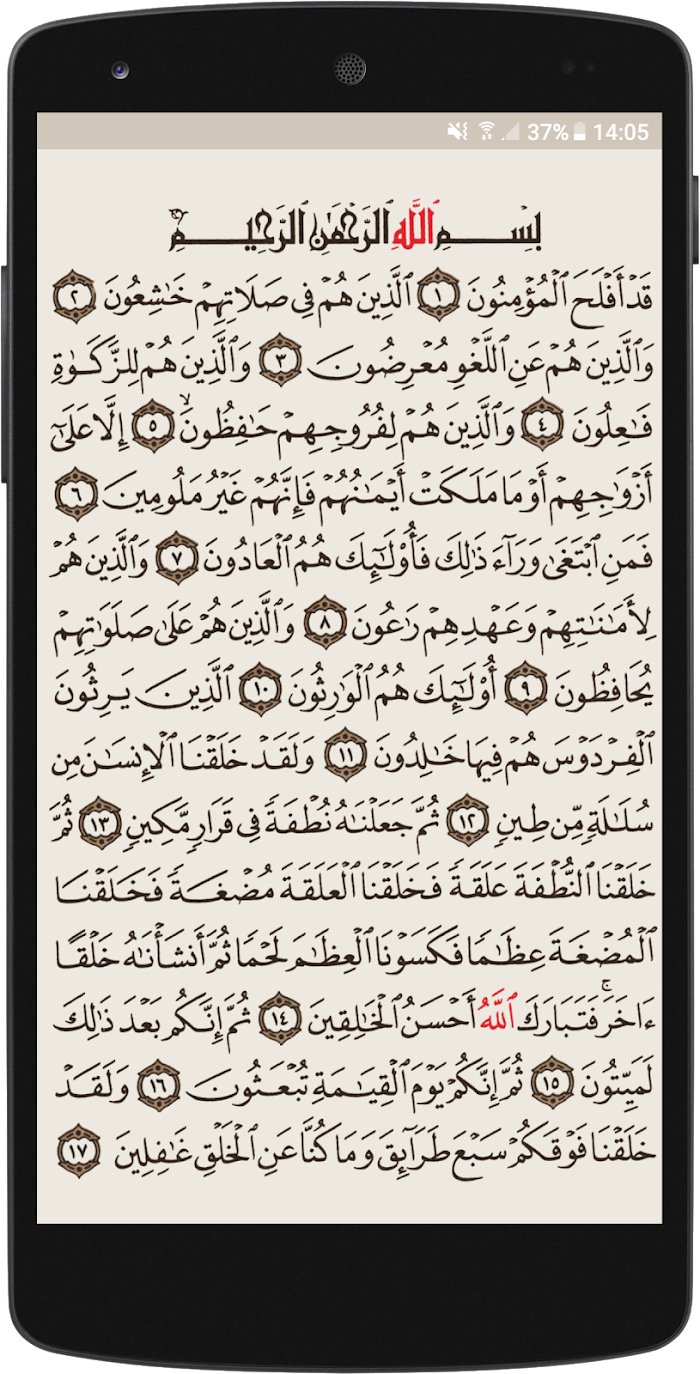 37% 14:05
بِسْمِ ٱللَّهِ ٱلرَّحْمَٰنِ ٱلرَّحِيمِ
قَدْ أَفْلَحَ ٱلْمُؤْمِنُونَ ١ ٱلَّذِينَ هُمْ فِى صَلَاتِهِمْ خَٰشِعُونَ ٢
وَٱلَّذِينَ هُمْ عَنِ ٱللَّغْوِ مُعْرِضُونَ ٣ وَٱلَّذِينَ هُمْ لِلزَّكَوٰةِ
فَٰعِلُونَ ٤ وَٱلَّذِينَ هُمْ لِفُرُوجِهِمْ حَٰفِظُونَ ٥ إِلَّا عَلَىٰٓ
أَزْوَٰجِهِمْ أَوْ مَا مَلَكَتْ أَيْمَٰنُهُمْ فَإِنَّهُمْ غَيْرُ مَلُومِينَ ٦
فَمَنِ ٱبْتَغَىٰ وَرَآءَ ذَٰلِكَ فَأُو۟لَٰٓئِكَ هُمُ ٱلْعَادُونَ ٧ وَٱلَّذِينَ هُمْ
لِأَمَٰنَٰتِهِمْ وَعَهْدِهِمْ رَٰعُونَ ٨ وَٱلَّذِينَ هُمْ عَلَىٰ صَلَوَٰتِهِمْ
يُحَافِظُونَ ٩ أُو۟لَٰٓئِكَ هُمُ ٱلْوَٰرِثُونَ ١٠ ٱلَّذِينَ يَرِثُونَ
ٱلْفِرْدَوْسَ هُمْ فِيهَا خَٰلِدُونَ ١١ وَلَقَدْ خَلَقْنَا ٱلْإِنسَٰنَ مِن
سُلَٰلَةٍ مِّن طِينٍ ١٢ ثُمَّ جَعَلْنَٰهُ نُطْفَةً فِى قَرَارٍ مَّكِينٍ ١٣ ثُمَّ
خَلَقْنَا ٱلنُّطْفَةَ عَلَقَةً فَخَلَقْنَا ٱلْعَلَقَةَ مُضْغَةً فَخَلَقْنَا
ٱلْمُضْغَةَ عِظَٰمًا فَكَسَوْنَا ٱلْعِظَٰمَ لَحْمًا ثُمَّ أَنشَأْنَٰهُ خَلْقًا
ءَاخَرَ ۚ فَتَبَارَكَ ٱللَّهُ أَحْسَنُ ٱلْخَٰلِقِينَ ١٤ ثُمَّ إِنَّكُم بَعْدَ ذَٰلِكَ
لَمَيِّتُونَ ١٥ ثُمَّ إِنَّكُمْ يَوْمَ ٱلْقِيَٰمَةِ تُبْعَثُونَ ١٦ وَلَقَدْ
خَلَقْنَا فَوْقَكُمْ سَبْعَ طَرَآئِقَ وَمَا كُنَّا عَنِ ٱلْخَلْقِ غَٰفِلِينَ ١٧